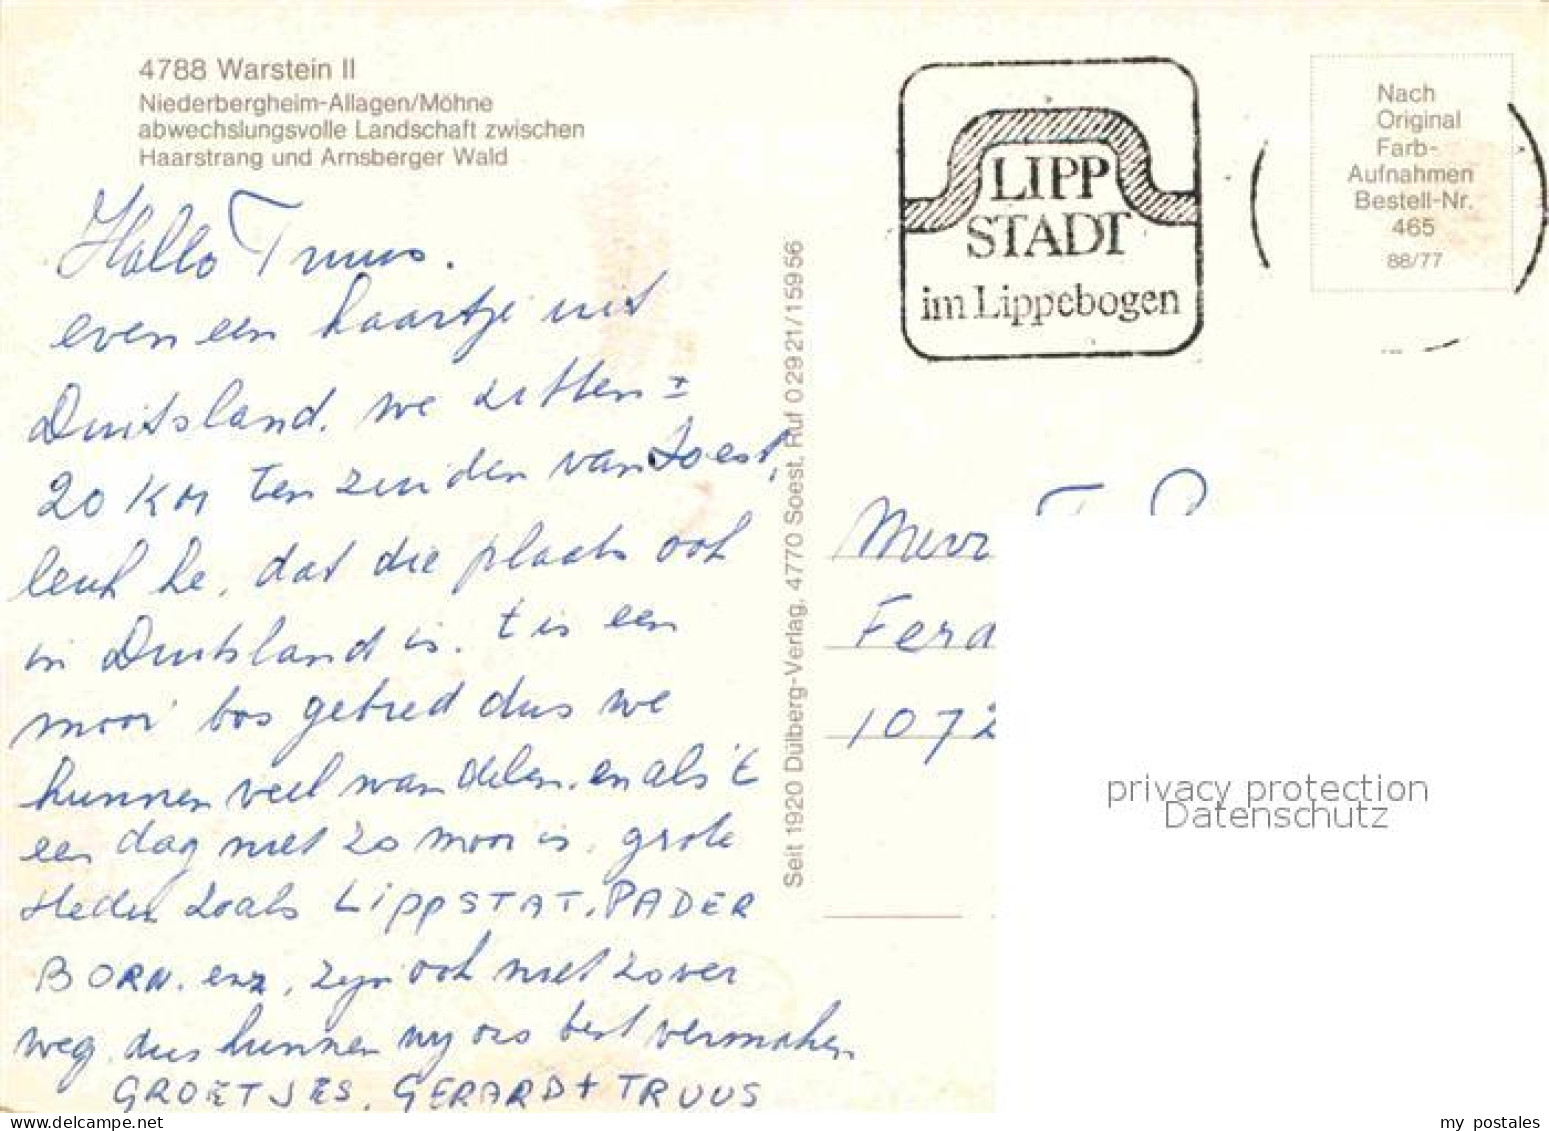 4788 Warstein II
Niederbergheim-Allagen/Möhne
abwechslungsvolle Landschaft zwischen
Haarstrang und Arnsberger Wald
Hallo Truus.
even een kaartje uit
Duitsland. we zitten ±
20 KM ten zuiden van Soest,
leuk he, dat die plaats ook
in Duitsland is. t is een
mooi bos gebied dus we
kunnen veel wandelen. en als 't
een dag niet zo mooi is. grote
steden zoals LippSTAT, PADER
BORN. enz, zijn ook niet zo ver
weg. dus kunnen wij ons best vermaken
GROETJES, GERARD + TRUUS
Seit 1920 Dülberg-Verlag, 4770 Soest. Ruf 0 29 21 / 1 59 56
LIPP
STADT
im Lippebogen
Nach
Original
Farb-
Aufnahmen
Bestell-Nr.
465
88/77
Mevr
Ferd
1072
privacy protection
Datenschutz
my postales